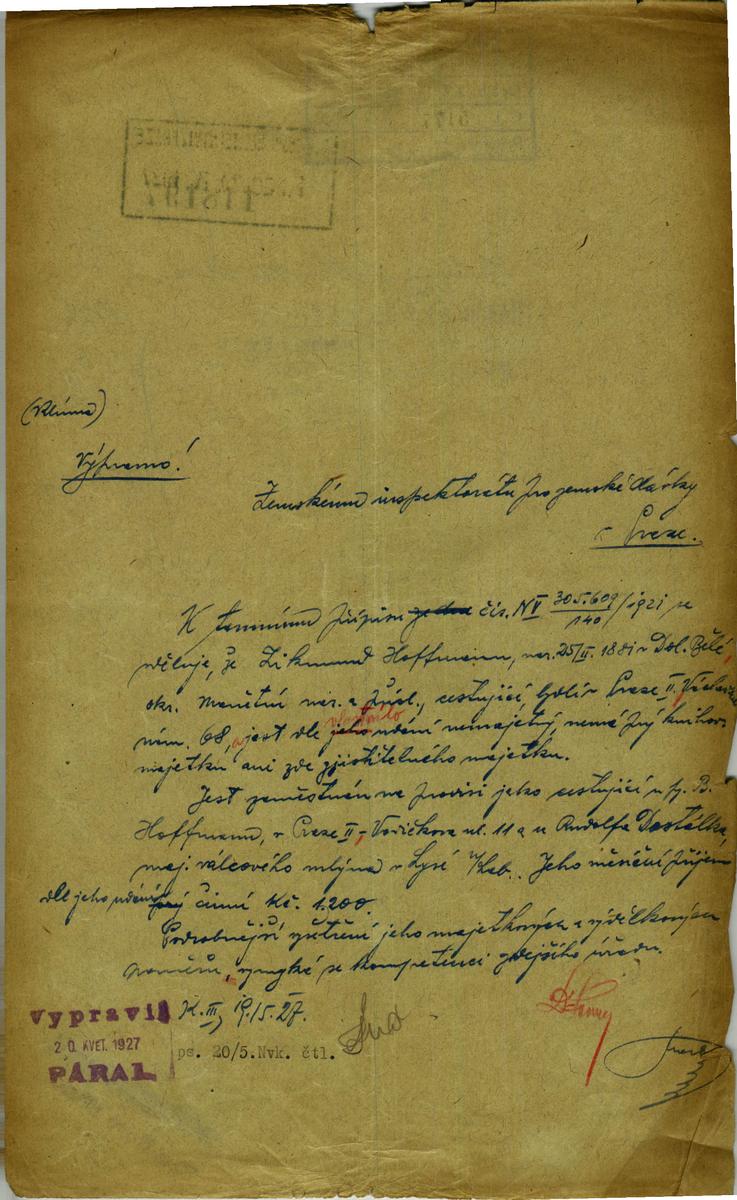 Výpravno!
Zemskému inspektorátu pro zemské dávky
v Praze.
K tamnímu přípisu čís. NV 305.609/140 /1921 se
sděluje, že Zikmund Hoffmann, nar. 25/II. 1881 v Dol. Bělé,
okr. Manětín nar. a přísl., cestující, bydlí v Praze II, Václavské
nám. 68, a jest dle vlastního udání nemajetný, nemá prý knihov.
majetku ani zde zjistitelného majetku.
Jest zaměstnán na provisi jako cestující u fy. B.
Hoffmann, v Praze II, Vodičkova ul. 11 a u Rudolfa Dostálka,
maj. válcového mlýna v Lysé n/Lab.. Jeho měsíční příjem
dle jeho udání činní Kč. 1.200.
Podrobnější vyšetření jeho majetkových a výdělkových
poměrů, vymyká se kompetenci zdejšího úřadu.
K. III, 19./5. 27.
Vypravil
20. KVĚT. 1927
PÁRAL
ps. 20/5.Nvk. čtl.